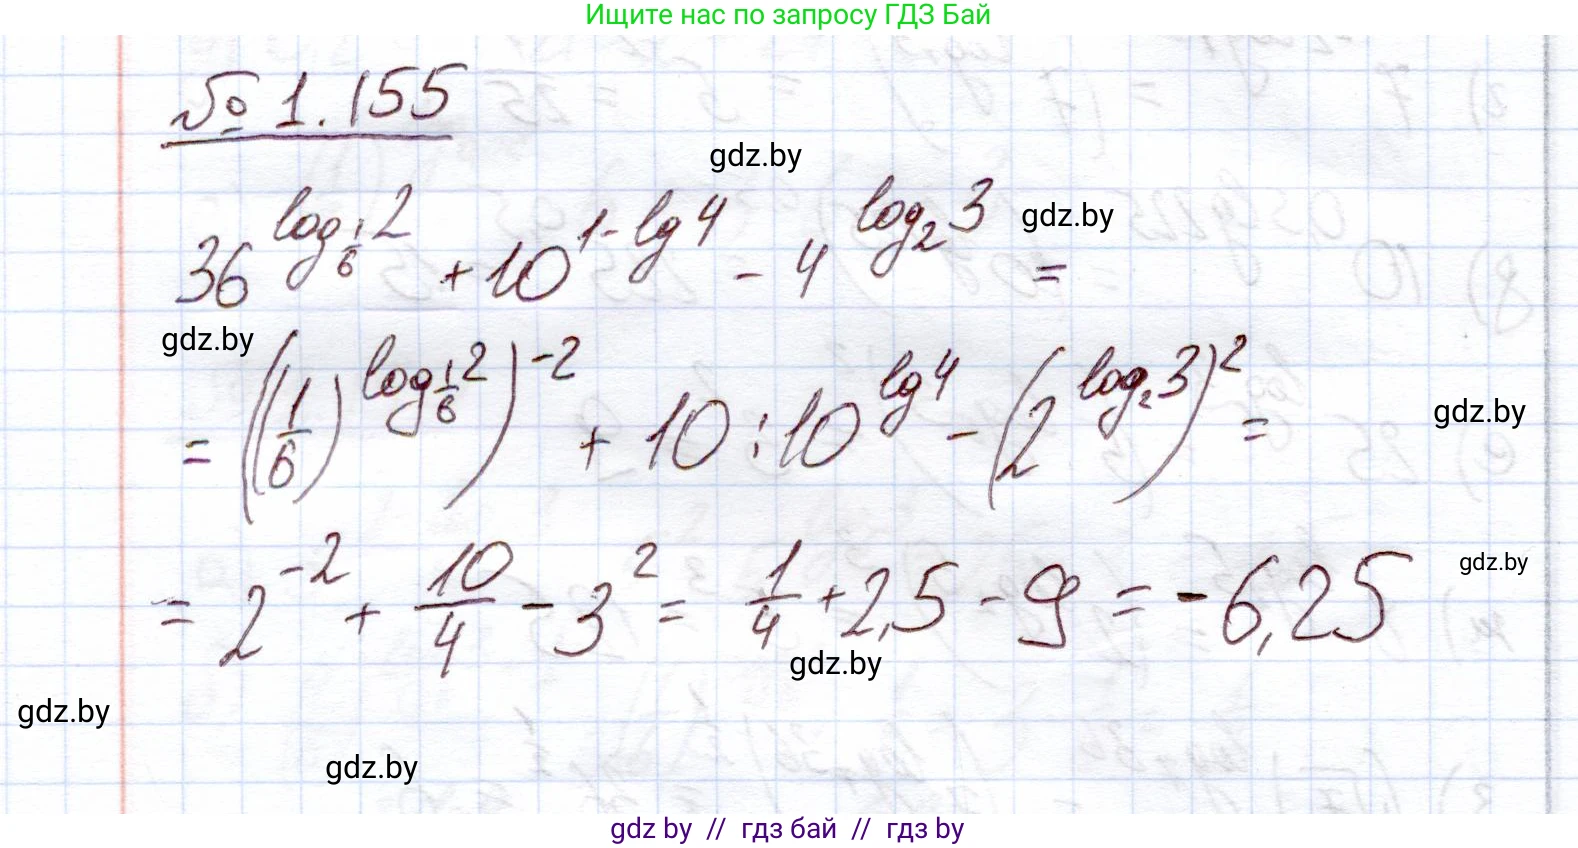 Ищите нас по запросу ГДЗ Бай
№ 1.155
gdz.by
36^{log_{1/6} 2} + 10^{1-lg 4} - 4^{log_2 3} =
gdz.by
gdz.by
= ((1/6)^{log_{1/6} 2})^{-2} + 10 : 10^{lg 4} - (2^{log_2 3})^2 =
gdz.by
= 2^{-2} + 10/4 - 3^2 = 1/4 + 2,5 - 9 = -6,25
gdz.by
gdz.by
gdz.by
gdz.by
gdz by // гдз бай // гдз by